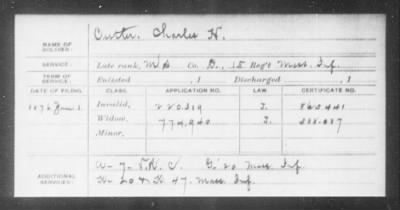 NAME OF SOLDIER: Cutter, Charles H.
SERVICE: Late rank, Co. B, 15 Reg't Mass. Inf.
TERM OF SERVICE: Enlisted , 1 Discharged , 1
DATE OF FILING. CLASS. APPLICATION NO. LAW. CERTIFICATE NO.
1876 June 1. Invalid, 220.319
Widow, 774.940
Minor,
ADDITIONAL SERVICES: A- 7- V.R.C. G. 20 Mass. Inf.
K- 20 & K 47. Mass. Inf.